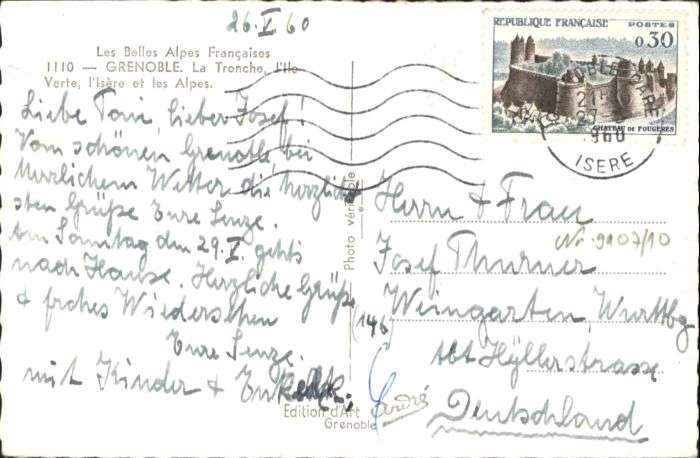 26.V.60
Les Belles Alpes Françaises
1110 — GRENOBLE. La Tronche, l'Ile
Verte, l'Isère et les Alpes.
Liebe Toni, lieber Josef!
Vom schönen Grenoble bei
herrlichem Wetter die herzlich
sten Grüße Eure Senze.
Am Sonntag den 29.V. gehts
nach Hause. Herzliche Grüße
& frohes Wiedersehen
Eure Senze.
mit Kinder & Enkel
Photo véritable
Edition d'Art André
Grenoble
REPUBLIQUE FRANÇAISE POSTES
0,30
CHATEAU DE FOUGERES
GARE
ISERE
Herrn & Frau
Nr. 9107/10
Josef Thurner
(146
Weingarten, Württbg
Abt Hyllerstrasse
Deutschland